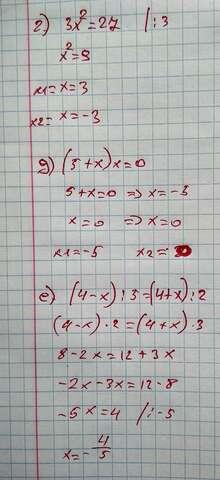 г) 3x²=27 /:3
x²=9
x1=x=3
x2=x=-3
д) (5+x)x=0
5+x=0 => x=-5
x=0 => x=0
x1=-5 x2=0
е) (4-x):3=(4+x):2
(4-x)·2=(4+x)·3
8-2x=12+3x
-2x-3x=12-8
-5x=4 /:-5
x=-4/5